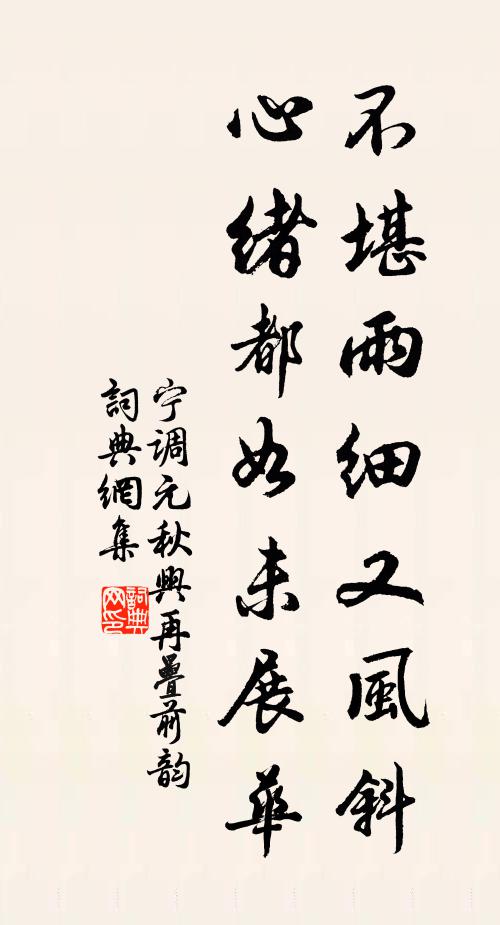 不堪雨細又風斜
心緒都如未展華
宁調元秋興再疊前韵
詞典網集
詞典网印